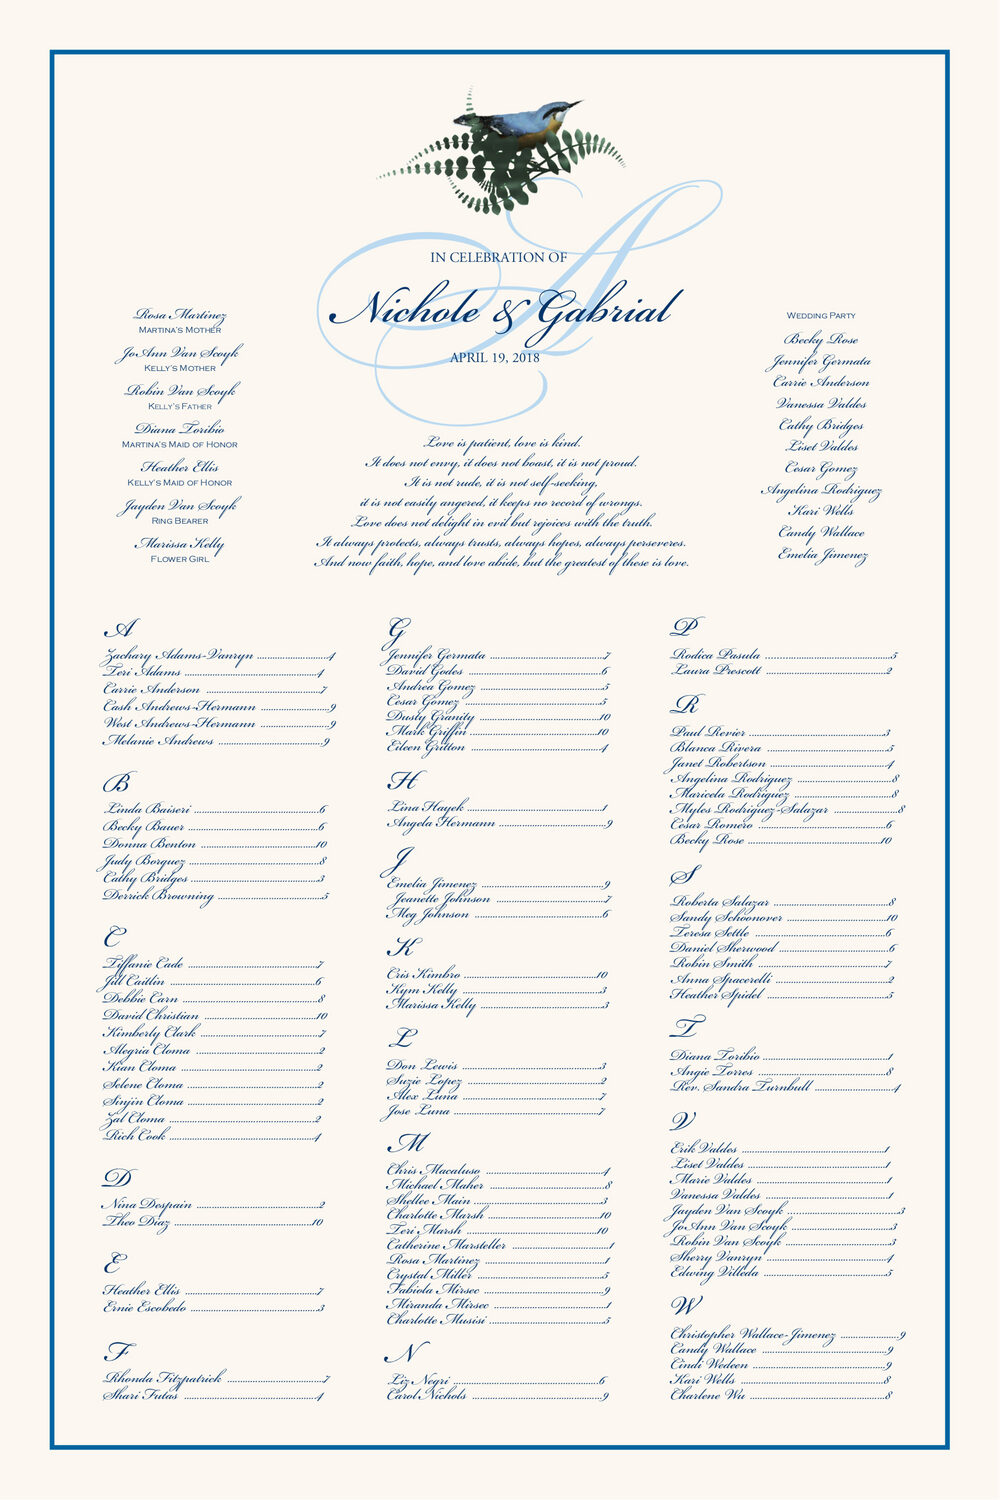 A
IN CELEBRATION OF
Nichole & Gabrial
APRIL 19, 2018
Rosa Martinez
MARTINA'S MOTHER
JoAnn Van Scoyk
KELLY'S MOTHER
Robin Van Scoyk
KELLY'S FATHER
Diana Toribio
MARTINA'S MAID OF HONOR
Heather Ellis
KELLY'S MAID OF HONOR
Jayden Van Scoyk
RING BEARER
Marissa Kelly
FLOWER GIRL
Love is patient, love is kind.
It does not envy, it does not boast, it is not proud.
It is not rude, it is not self-seeking,
it is not easily angered, it keeps no record of wrongs.
Love does not delight in evil but rejoices with the truth.
It always protects, always trusts, always hopes, always perseveres.
And now faith, hope, and love abide, but the greatest of these is love.
WEDDING PARTY
Becky Rose
Jennifer Germata
Carrie Anderson
Vanessa Valdes
Cathy Bridges
Liset Valdes
Cesar Gomez
Angelina Rodriguez
Kari Wells
Candy Wallace
Emelia Jimenez
A
Zachary Adams-Vanryn ........................4
Teri Adams ........................4
Carrie Anderson ........................7
Cash Andrews-Hermann ........................9
West Andrews-Hermann ........................9
Melanie Andrews ........................9
B
Linda Baiseri ........................6
Becky Bauer ........................6
Donna Benton ........................10
Judy Borquez ........................8
Cathy Bridges ........................3
Derrick Browning ........................5
C
Tiffanie Cade ........................7
Jill Caitlin ........................6
Debbie Carn ........................8
David Christian ........................10
Kimberly Clark ........................7
Alegria Cloma ........................2
Kian Cloma ........................2
Selene Cloma ........................2
Sinjin Cloma ........................2
Zal Cloma ........................2
Rich Cook ........................4
D
Nina Despain ........................2
Theo Diaz ........................10
E
Heather Ellis ........................7
Ernie Escobedo ........................3
F
Rhonda Fitzpatrick ........................7
Shari Futas ........................4
G
Jennifer Germata ........................7
David Godes ........................6
Andrea Gomez ........................5
Cesar Gomez ........................5
Dusty Granity ........................10
Mark Griffin ........................10
Eileen Gritton ........................4
H
Lina Hayek ........................1
Angela Hermann ........................9
J
Emelia Jimenez ........................9
Jeanette Johnson ........................7
Meg Johnson ........................6
K
Cris Kimbro ........................10
Kym Kelly ........................3
Marissa Kelly ........................3
L
Don Lewis ........................3
Suzie Lopez ........................2
Alex Luna ........................7
Jose Luna ........................7
M
Chris Macaluso ........................4
Michael Maher ........................8
Shellee Main ........................3
Charlotte Marsh ........................10
Teri Marsh ........................10
Catherine Marsteller ........................1
Rosa Martinez ........................1
Crystal Miller ........................5
Fabiola Mirsec ........................9
Miranda Mirsec ........................1
Charlotte Musisi ........................5
N
Liz Negri ........................6
Carol Nichols ........................9
P
Rodica Pasula ........................5
Laura Prescott ........................2
R
Paul Revier ........................3
Blanca Rivera ........................5
Janet Robertson ........................4
Angelina Rodriguez ........................8
Maricela Rodriguez ........................8
Myles Rodriguez-Salazar ........................8
Cesar Romero ........................6
Becky Rose ........................10
S
Roberta Salazar ........................8
Sandy Schoonover ........................10
Teresa Settle ........................6
Daniel Sherwood ........................6
Robin Smith ........................7
Anna Spacerelli ........................2
Heather Spidel ........................5
T
Diana Toribio ........................1
Angie Torres ........................8
Rev. Sandra Turnbull ........................4
V
Erik Valdes ........................1
Liset Valdes ........................1
Marie Valdes ........................1
Vanessa Valdes ........................1
Jayden Van Scoyk ........................3
JoAnn Van Scoyk ........................3
Robin Van Scoyk ........................3
Sherry Vanryn ........................4
Edwing Villeda ........................5
W
Christopher Wallace-Jimenez ........................9
Candy Wallace ........................9
Cindi Wedeen ........................9
Kari Wells ........................8
Charlene Wu ........................8